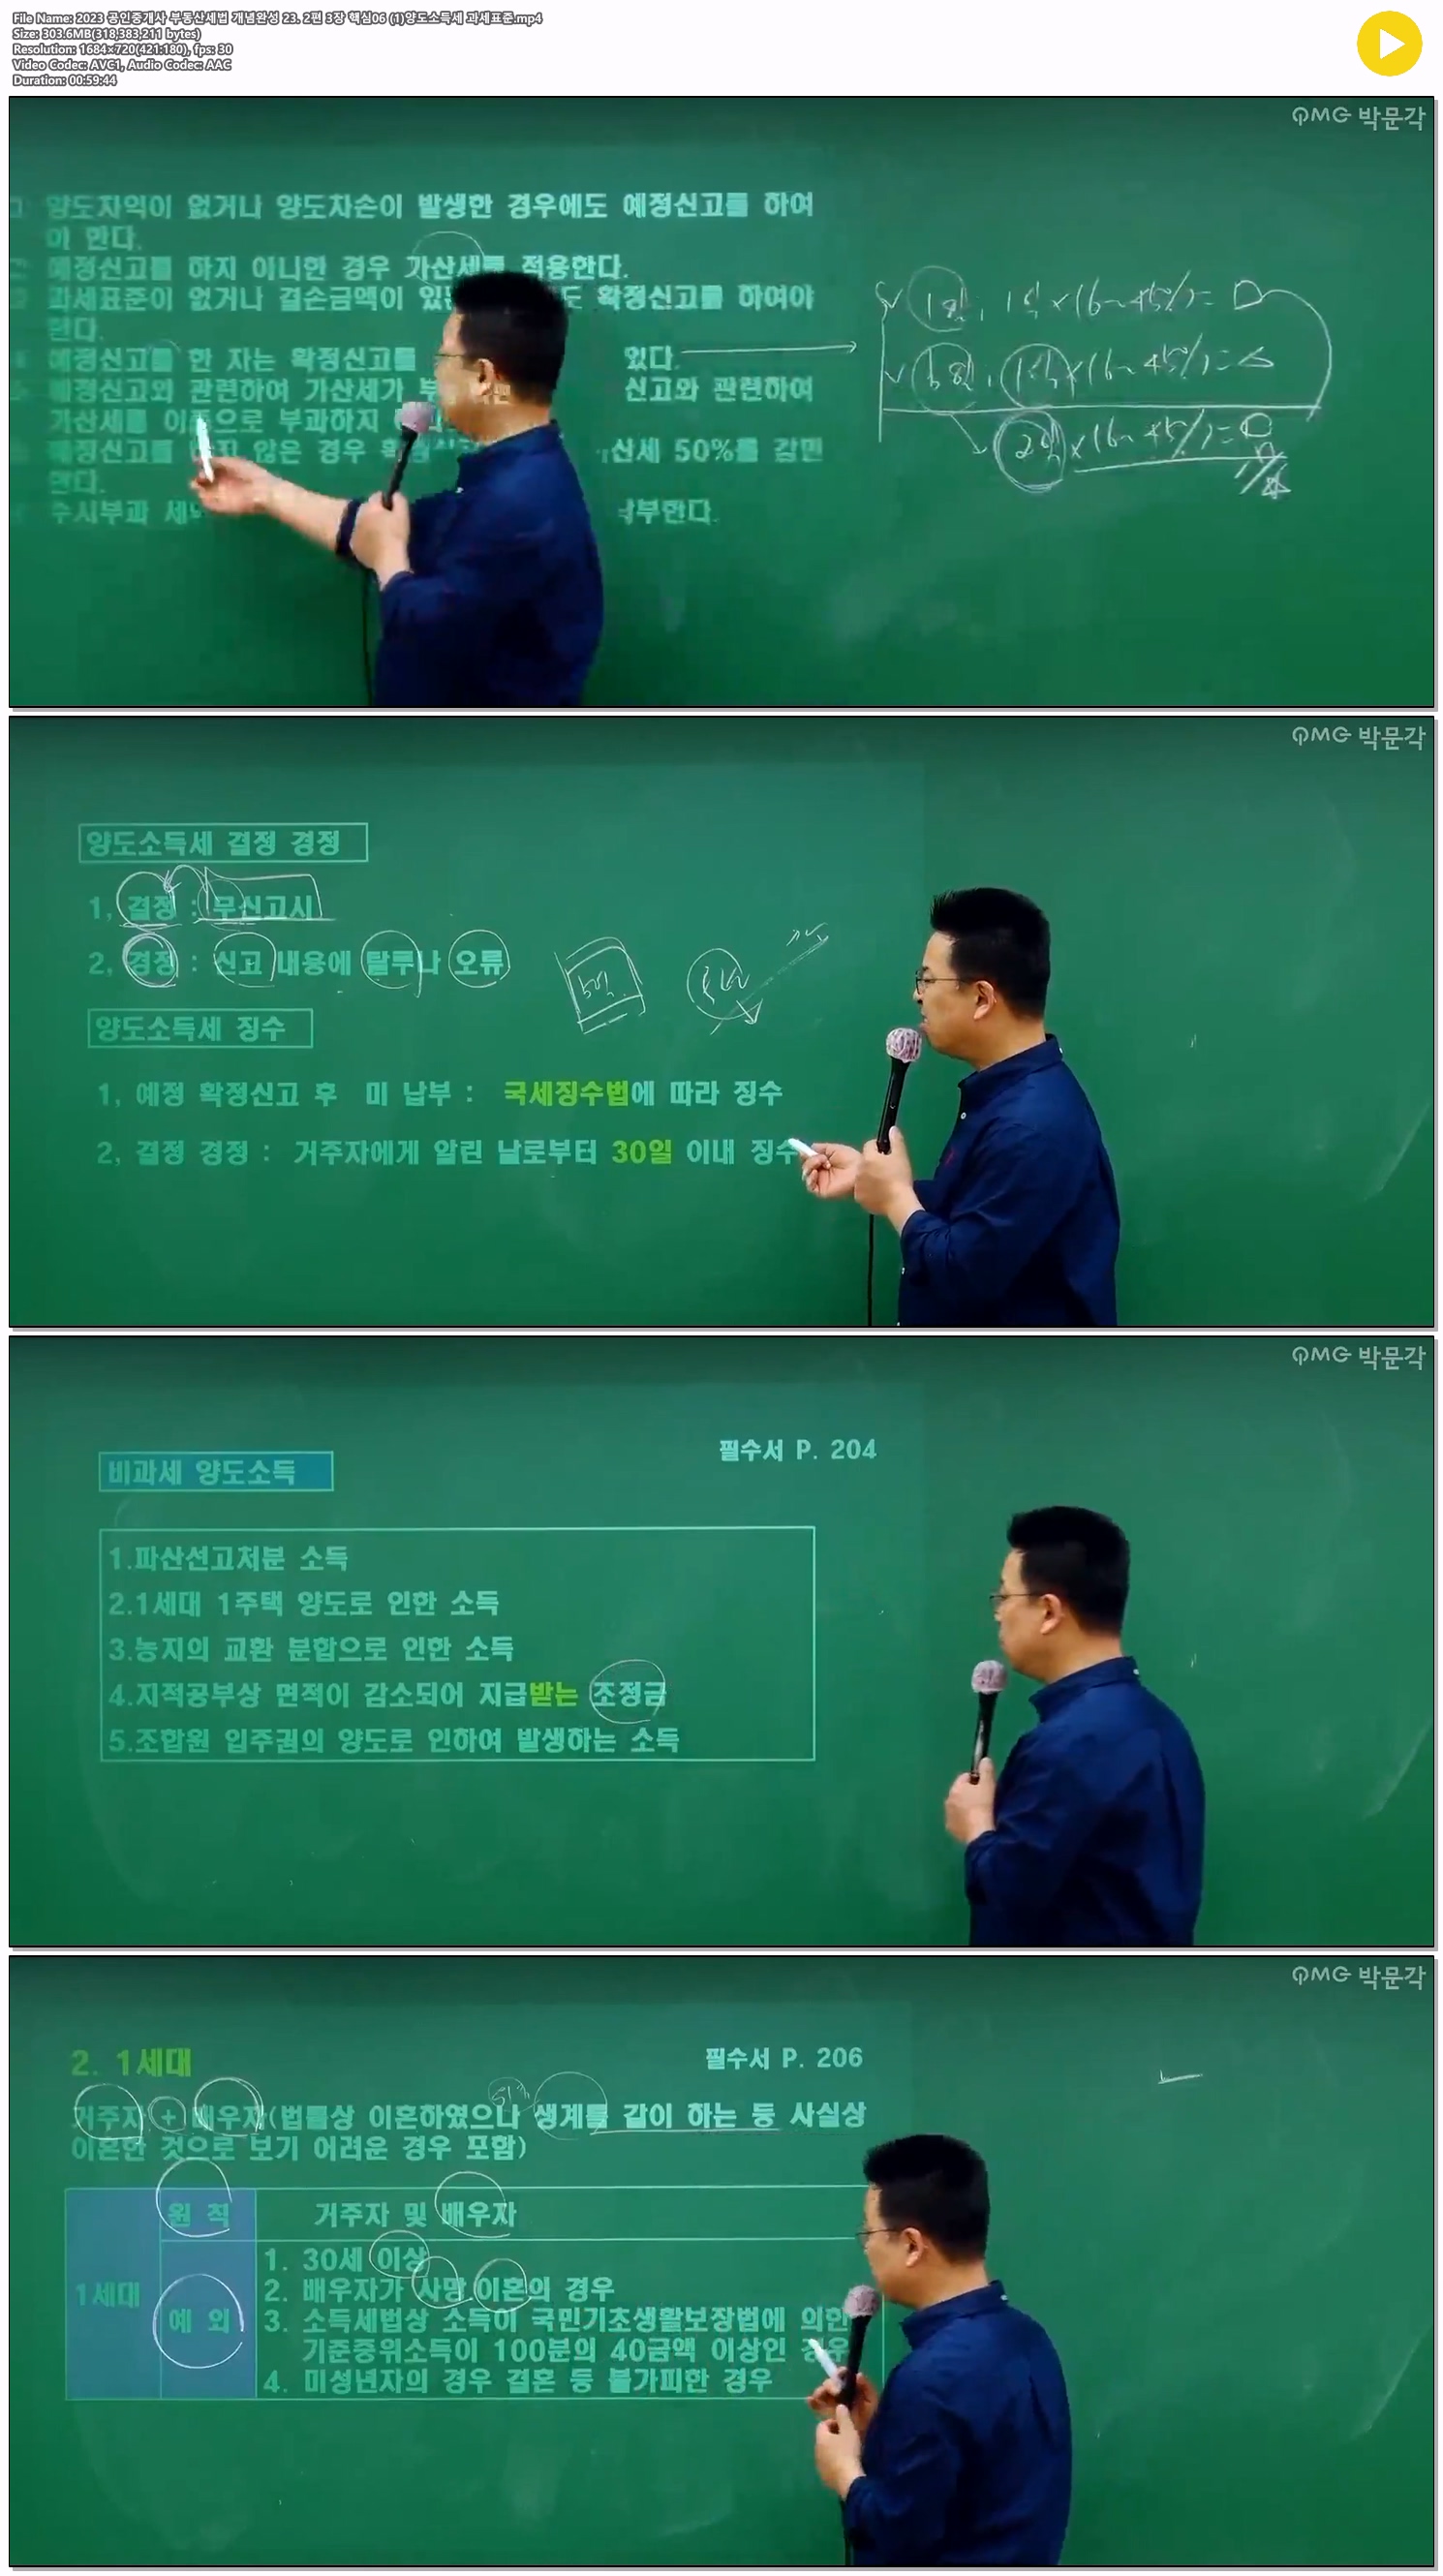 File Name: 2023 공인중개사 부동산세법 개념완성 23. 2편 3장 핵심06 (1)양도소득세 과세표준.mp4
Size: 303.6MB(318,383,211 bytes)
Resolution: 1684×720(421:180), fps: 30
Video Codec: AVC1, Audio Codec: AAC
Duration: 00:59:44
PMG 박문각
양도차익이 없거나 양도차손이 발생한 경우에도 예정신고를 하여
야 한다.
예정신고를 하지 아니한 경우 가산세를 적용한다.
과세표준이 없거나 결손금액이 확정신고를 하여야
한다.
예정신고를 한 자는 확정신고를 있다.
예정신고와 관련하여 가산세가 신고와 관련하여
가산세를 부과하지
예정신고를 않은 경우 50%를 감면
한다.
수시부과
PMG 박문각
양도소득세 결정 경정
1, 결정 : 무신고시
2, 경정 : 신고 내용에 탈루나 오류
양도소득세 징수
1, 예정 확정신고 후 미 납부 : 국세징수법에 따라 징수
2, 결정 경정 : 거주자에게 알린 날로부터 30일 이내 징수
PMG 박문각
필수서 P. 204
비과세 양도소득
1.파산선고처분 소득
2.1세대 1주택 양도로 인한 소득
3.농지의 교환 분합으로 인한 소득
4.지적공부상 면적이 감소되어 지급받는 조정금
5.조합원 입주권의 양도로 인하여 발생하는 소득
PMG 박문각
2. 1세대
필수서 P. 206
거주자 + 배우자(법률상 이혼하였으나 생계를 같이 하는 등 사실상
이혼한 것으로 보기 어려운 경우 포함)
원 칙 거주자 및 배우자
1세대
예 외
1. 30세 이상
2. 배우자가 사망 이혼의 경우
3. 소득세법상 소득이 국민기초생활보장법에 의한
기준중위소득이 100분의 40금액 이상인 경우
4. 미성년자의 경우 결혼 등 불가피한 경우